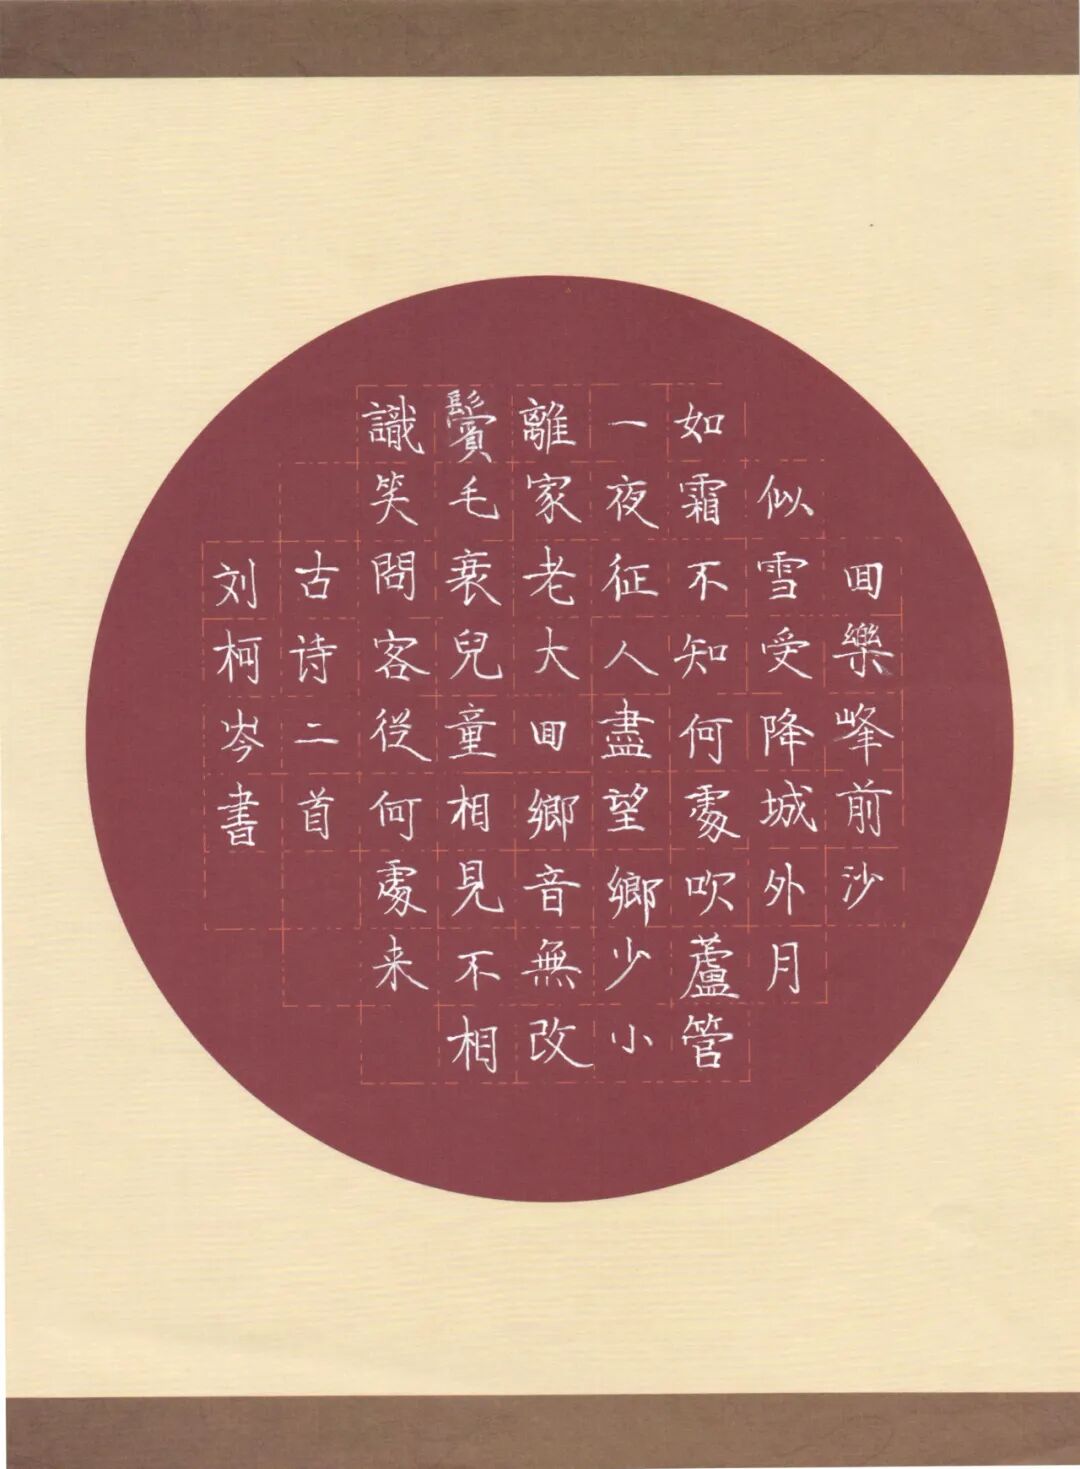 囬樂峰前沙
似雪受降城外月
如霜不知何處吹蘆管
一夜征人盡望鄉少小
離家老大囬鄉音無改
鬢毛衰兒童相見不相
識笑問客從何處来
古诗二首
刘柯岑書